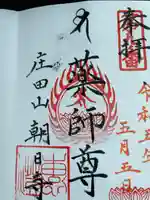 奉拝
令和五年
五月五日
薬師尊
庄田山 朝日寺